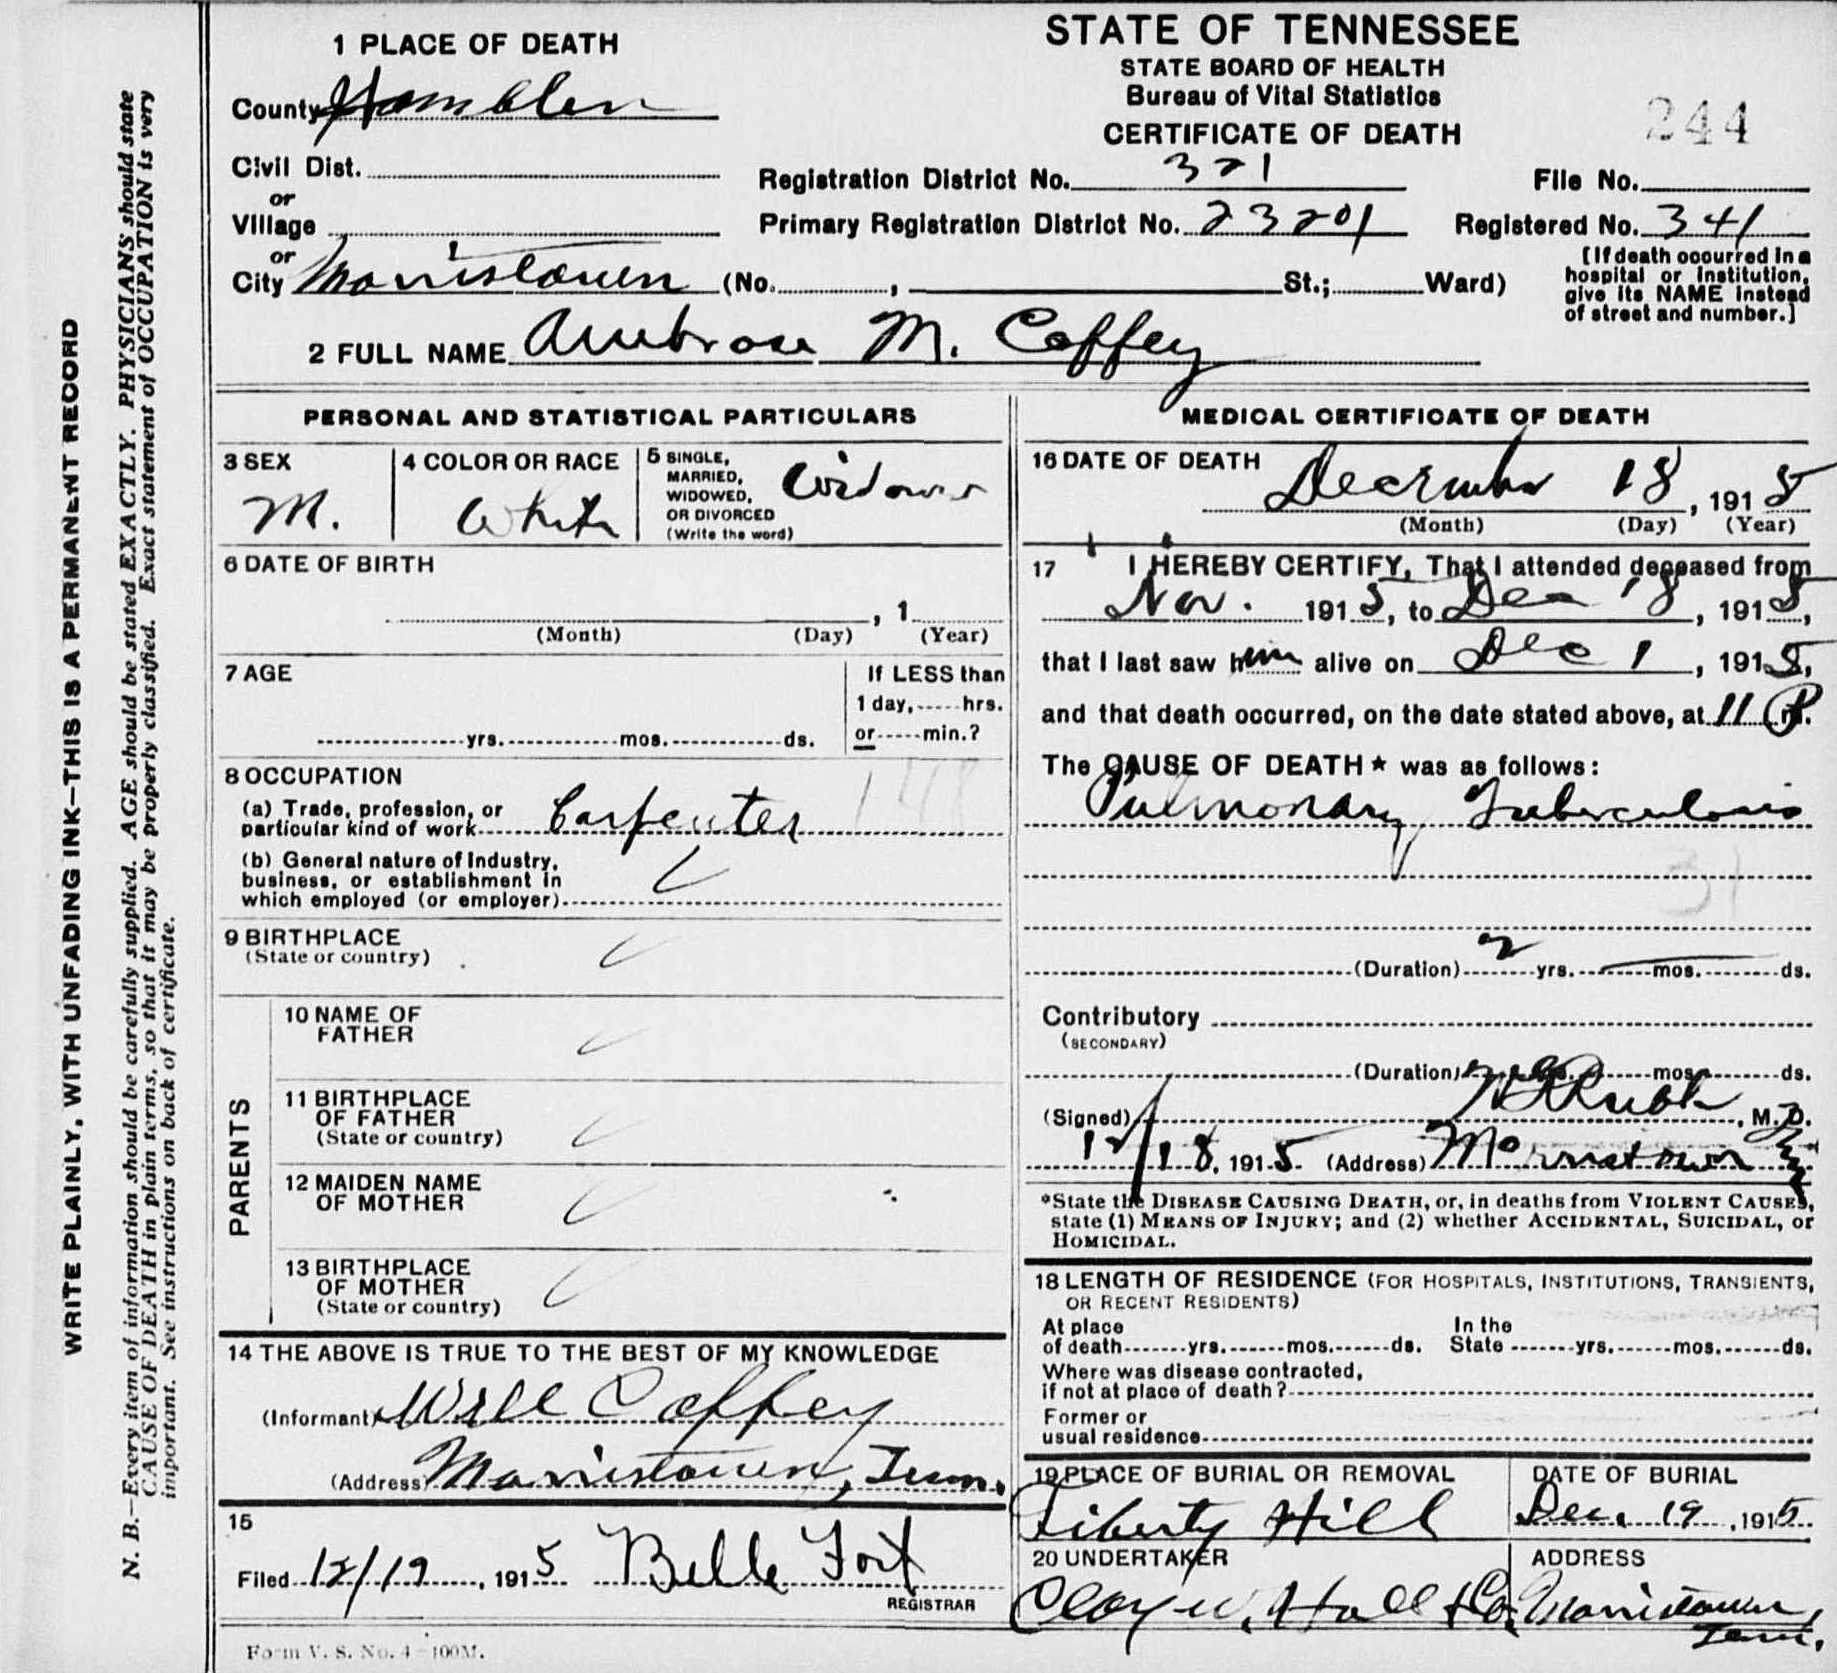 1 PLACE OF DEATH
County Hamblen
Civil Dist.
or
Village
or
City Morristown (No. , St.; Ward)
STATE OF TENNESSEE
STATE BOARD OF HEALTH
Bureau of Vital Statistics
CERTIFICATE OF DEATH
244
Registration District No. 321 File No.
Primary Registration District No. 23201 Registered No. 341
[If death occurred in a
hospital or institution,
give its NAME instead
of street and number.]
2 FULL NAME Ambrose M. Coffey
PERSONAL AND STATISTICAL PARTICULARS
3 SEX
M.
4 COLOR OR RACE
White
5 SINGLE,
MARRIED,
WIDOWED,
OR DIVORCED
(Write the word)
Widower
6 DATE OF BIRTH
, 1
(Month) (Day) (Year)
7 AGE
yrs. mos. ds.
If LESS than
1 day, hrs.
or min.?
8 OCCUPATION
(a) Trade, profession, or
particular kind of work Carpenter
148
(b) General nature of Industry,
business, or establishment in
which employed (or employer)
9 BIRTHPLACE
(State or country)
PARENTS
10 NAME OF
FATHER
11 BIRTHPLACE
OF FATHER
(State or country)
12 MAIDEN NAME
OF MOTHER
13 BIRTHPLACE
OF MOTHER
(State or country)
14 THE ABOVE IS TRUE TO THE BEST OF MY KNOWLEDGE
(Informant) Will Coffey
(Address) Morristown, Tenn.
15
Filed 12/19, 1915 Belle Fort
REGISTRAR
MEDICAL CERTIFICATE OF DEATH
16 DATE OF DEATH
December 18, 1915
(Month) (Day) (Year)
17 I HEREBY CERTIFY, That I attended deceased from
Nov. 1915, to Dec 18, 1915,
that I last saw him alive on Dec 1, 1915,
and that death occurred, on the date stated above, at 11 P m.
The CAUSE OF DEATH* was as follows:
Pulmonary Tuberculosis
31
(Duration) 2 yrs. mos. ds.
Contributory
(SECONDARY)
(Duration) yrs. mos. ds.
(Signed) , M.D.
12/18, 1915 (Address) Morristown
*State the DISEASE CAUSING DEATH, or, in deaths from VIOLENT CAUSES,
state (1) MEANS OF INJURY; and (2) whether ACCIDENTAL, SUICIDAL, or
HOMICIDAL.
18 LENGTH OF RESIDENCE (FOR HOSPITALS, INSTITUTIONS, TRANSIENTS,
OR RECENT RESIDENTS)
At place
of death yrs. mos. ds.
In the
State yrs. mos. ds.
Where was disease contracted,
if not at place of death?
Former or
usual residence
19 PLACE OF BURIAL OR REMOVAL
Liberty Hill
DATE OF BURIAL
Dec. 19, 1915
20 UNDERTAKER
W. Hall & Co.
ADDRESS
Morristown,
Tenn.
Form V. S. No. 4—100M.
WRITE PLAINLY, WITH UNFADING INK—THIS IS A PERMANENT RECORD
N. B.—Every item of information should be carefully supplied. AGE should be stated EXACTLY. PHYSICIANS should state
CAUSE OF DEATH in plain terms, so that it may be properly classified. Exact statement of OCCUPATION is very
important. See instructions on back of certificate.